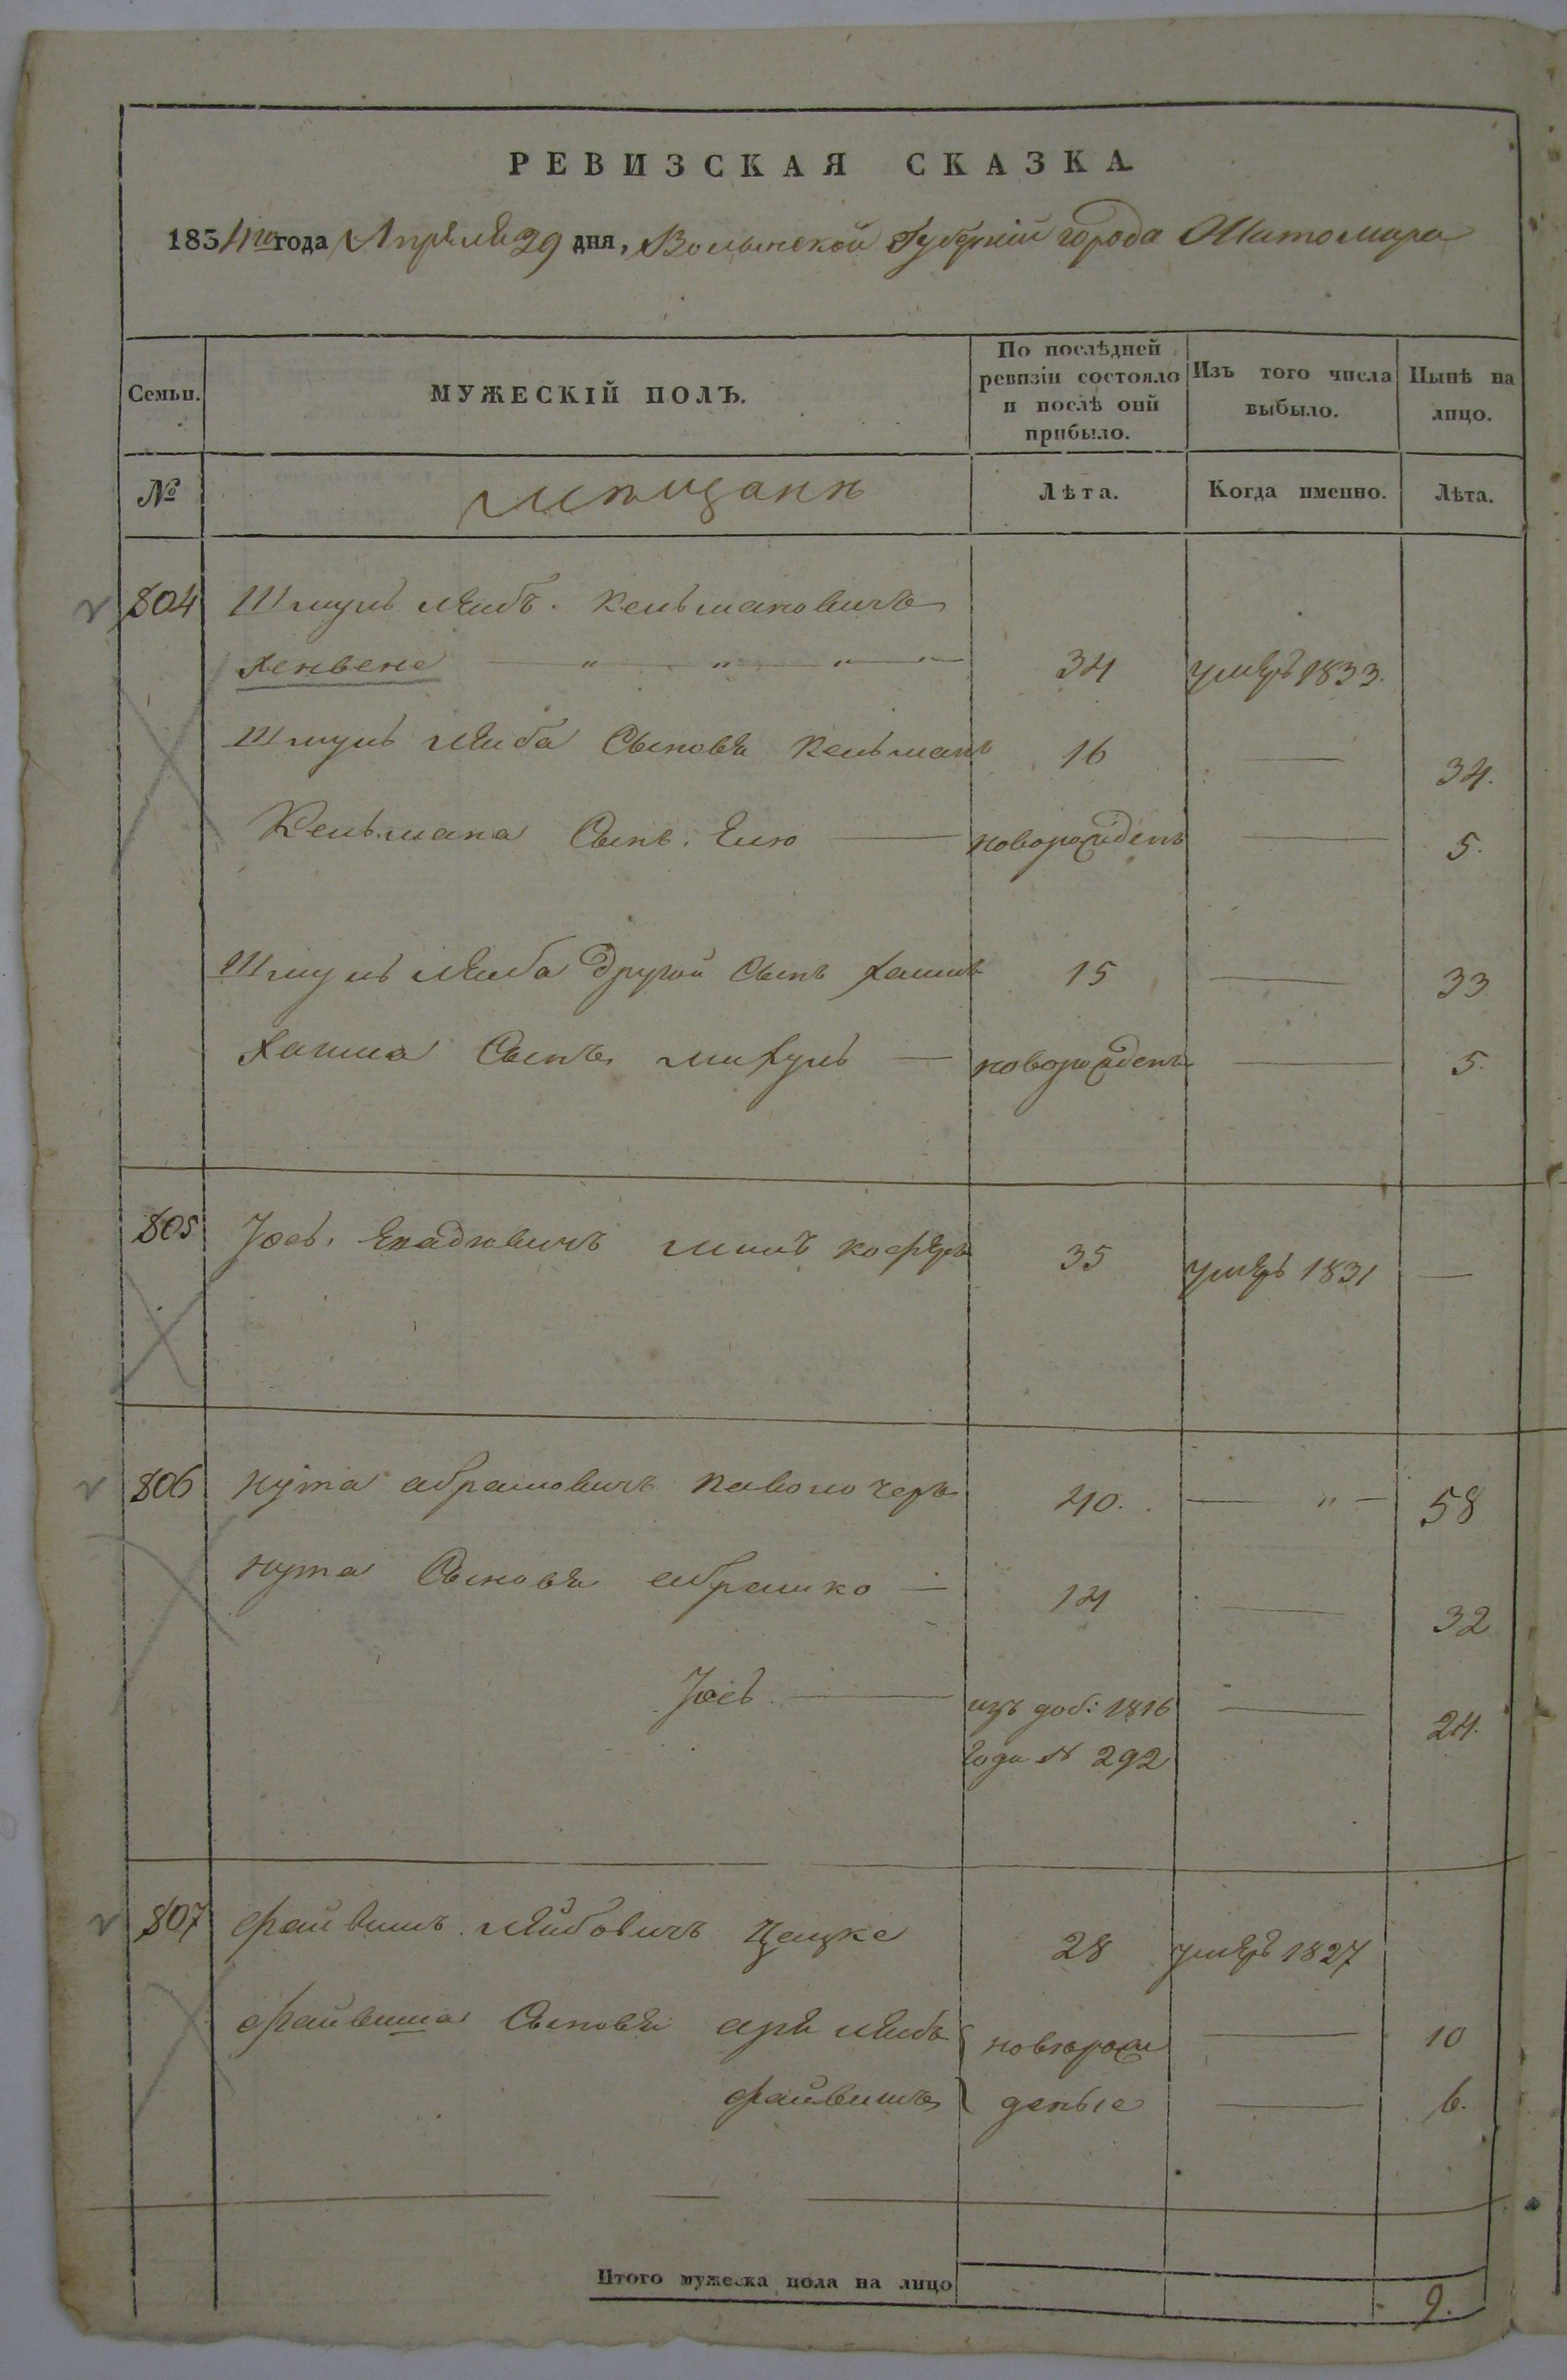 РЕВИЗСКАЯ СКАЗКА
1834го года Апреля 29 дня, Волынской Губерніи города Житомира
Семьи.
МУЖЕСКІЙ ПОЛЪ.
По послѣдней ревизіи состояло и послѣ оній прибыло.
Изъ того числа выбыло.
Нынѣ на лицо.
№
мещане
Лѣта.
Когда именно.
Лѣта.
804 Шмуль Лейбъ Кельмановичъ
34 умеръ 1833.
Шмуль Лейба Сыновя Кельманъ 16 — 34.
Кельмана Сынъ Елю — новорожденъ — 5.
Шмуль Лейба другой Сынъ Хаимъ 15 — 33
Хаима Сынъ Михуль — новорожденъ — 5.
805 Іось 35 умеръ 1831 —
806 Нута Абрамовичъ Паволочеръ 40. — " — 58
Нута Сыновя Абрамко — 14 — 32
Іось — изъ доб: 1816 — 24.
года № 292
807 Файвишъ Лейбовичъ Цацке 28 умеръ 1827
Файвиша Сыновя Аря Лейбъ { новорож — 10
Файвишъ } деные — 6.
Итого мужеска пола на лицо 9.